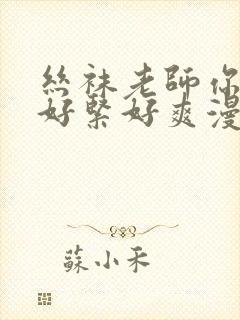 絲袜老師你
好緊好爽漫
蘇小禾